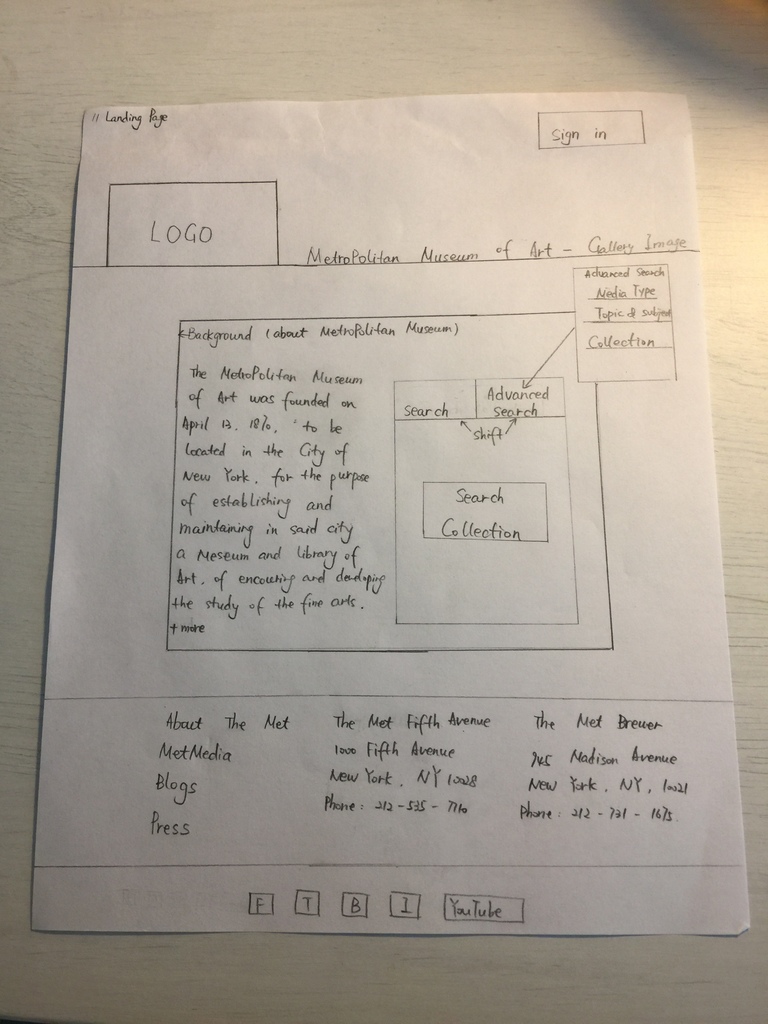 // Landing Page
Sign in
LOGO
MetroPolitan Museum of Art - Gallery Image
Advanced Search
Media Type
Topic & subject
Collection
Background (about MetroPolitan Museum)
The MetroPolitan Museum
of Art was founded on
April 13, 1870, "to be
located in the City of
New York, for the purpose
of establishing and
maintaining in said city
a Meseum and library of
Art, of encouring and developing
the study of the fine arts.
+ more
Search
Advanced
Search
shift
Search
Collection
About The Met
MetMedia
Blogs
Press
The Met Fifth Avenue
1000 Fifth Avenue
New York, NY 10028
Phone: 212-535-7710
The Met Brewer
945 Madison Avenue
New York, NY, 10021
Phone: 212-731-1675
F T B I YouTube